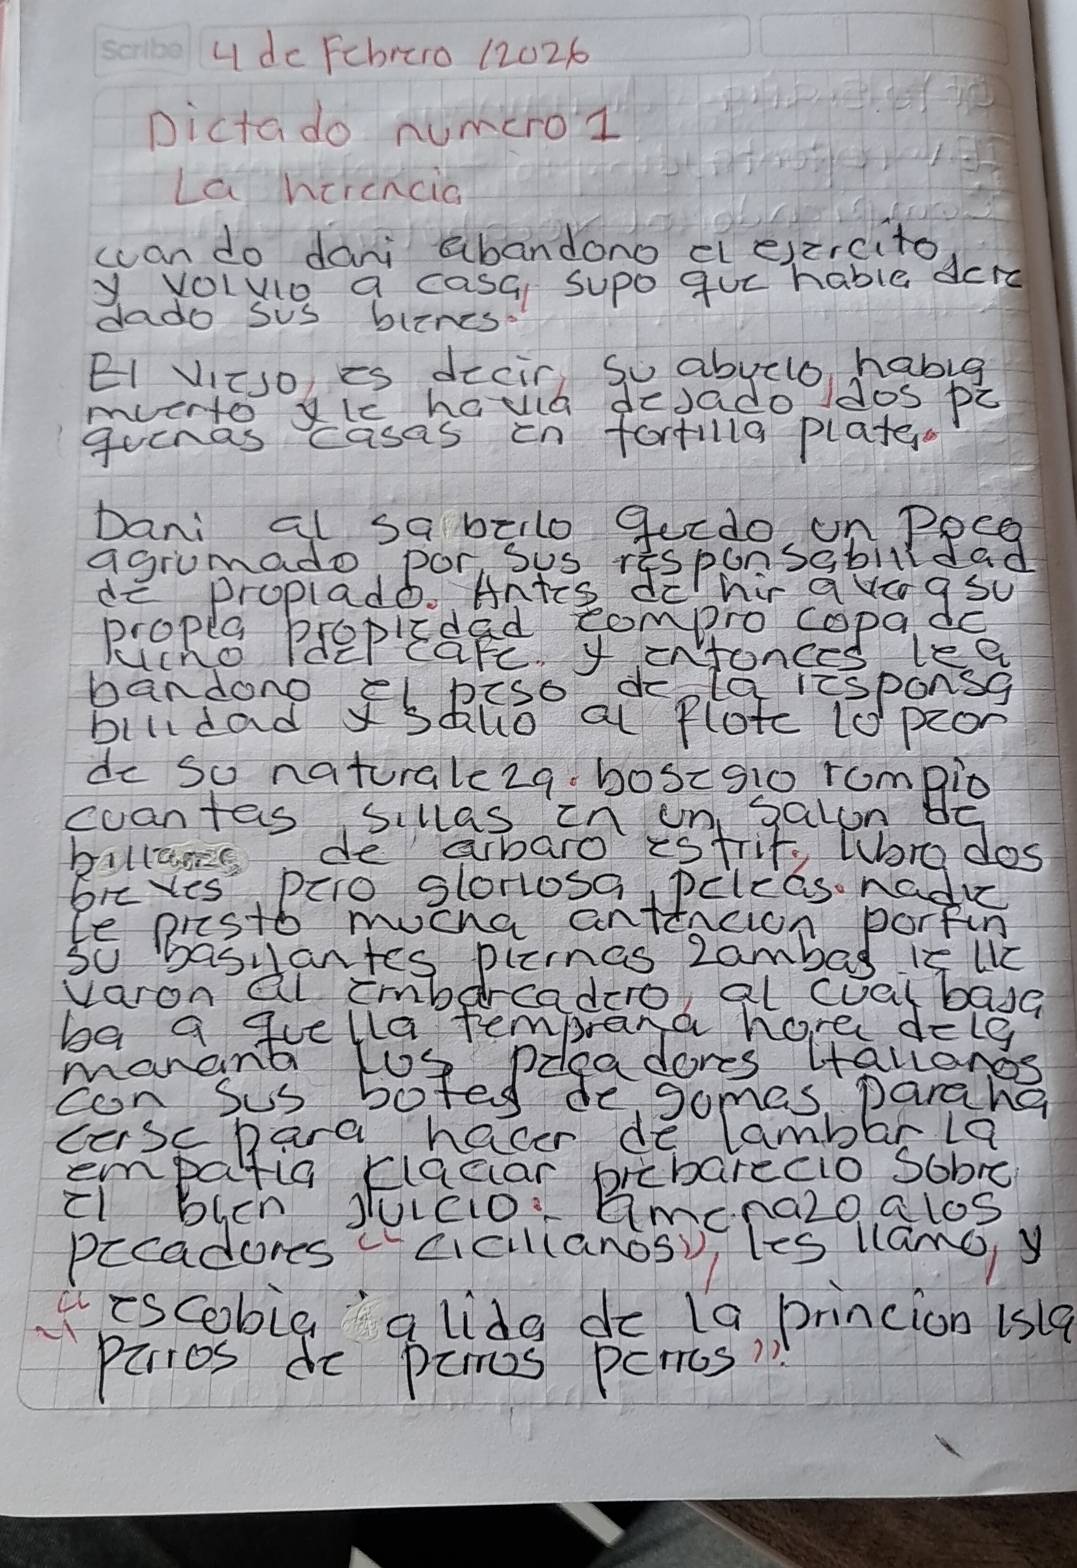 Scribe 4 de Febrero /2026
Dictado numero 1
La herencia
cuan do dani abandono el ejercito,
y volvio a casa, supo que habia dere
dado sus bienes.
El viejo, es decir, su abuelo, habia
muerto y le havia dejado, dos pe
quenas casas en tortilla plate.
Dani al sa berlo quedo un Poco
agrumado por sus responsabilidad
de propiado. Antes de hir a vera su
propia propiedad compro copa de
de cafe. y entonces le a
bandono el peso de la responsa
bilidad y salio al flote lo peor
de su naturaleza. bosegio rompio
cuantas sillas en un salun de
de arbaro estrit, libro dos
breves pero gloriosa, peleas. nadie
le presto mucha antencion porfin
su basilantes piernas zambas le lle
varon al embarcadero, al cual baja
ba a quella temprana hora de la
manana los pecadores italianos
con sus botes de gomas, para ha
cerse para hacer de lambar la
empatia klaciar prebarecio sobre
el bien juicio. Amenazo a los
pecadores "cicilianos", les llamo, y
"escobia a lida de la princion isla
Perros de perros perros".